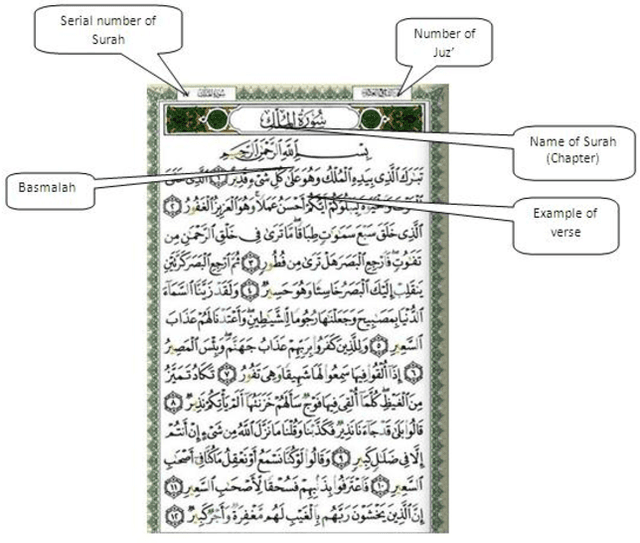 Serial number of
Surah
Number of
Juz’
سُورَةُ المُلْكِ
Name of Surah
(Chapter)
بِسْمِ اللَّهِ الرَّحْمَٰنِ الرَّحِيمِ
Basmalah
تَبَارَكَ الَّذِي بِيَدِهِ الْمُلْكُ وَهُوَ عَلَىٰ كُلِّ شَيْءٍ قَدِيرٌ ١ الَّذِي خَلَقَ
الْمَوْتَ وَالْحَيَوٰةَ لِيَبْلُوَكُمْ أَيُّكُمْ أَحْسَنُ عَمَلًا وَهُوَ الْعَزِيزُ الْغَفُورُ ٢
Example of
verse
الَّذِي خَلَقَ سَبْعَ سَمَٰوَٰتٍ طِبَاقًا مَّا تَرَىٰ فِي خَلْقِ الرَّحْمَٰنِ مِن
تَفَٰوُتٍ فَارْجِعِ الْبَصَرَ هَلْ تَرَىٰ مِن فُطُورٍ ٣ ثُمَّ ارْجِعِ الْبَصَرَ كَرَّتَيْنِ
يَنقَلِبْ إِلَيْكَ الْبَصَرُ خَاسِئًا وَهُوَ حَسِيرٌ ٤ وَلَقَدْ زَيَّنَّا السَّمَاءَ
الدُّنْيَا بِمَصَٰبِيحَ وَجَعَلْنَٰهَا رُجُومًا لِّلشَّيَٰطِينِ وَأَعْتَدْنَا لَهُمْ عَذَابَ
السَّعِيرِ ٥ وَلِلَّذِينَ كَفَرُوا بِرَبِّهِمْ عَذَابُ جَهَنَّمَ وَبِئْسَ الْمَصِيرُ
٦ إِذَا أُلْقُوا فِيهَا سَمِعُوا لَهَا شَهِيقًا وَهِيَ تَفُورُ ٧ تَكَادُ تَمَيَّزُ
مِنَ الْغَيْظِ كُلَّمَا أُلْقِيَ فِيهَا فَوْجٌ سَأَلَهُمْ خَزَنَتُهَا أَلَمْ يَأْتِكُمْ نَذِيرٌ ٨
قَالُوا بَلَىٰ قَدْ جَاءَنَا نَذِيرٌ فَكَذَّبْنَا وَقُلْنَا مَا نَزَّلَ اللَّهُ مِن شَيْءٍ إِنْ أَنتُمْ
إِلَّا فِي ضَلَٰلٍ كَبِيرٍ ٩ وَقَالُوا لَوْ كُنَّا نَسْمَعُ أَوْ نَعْقِلُ مَا كُنَّا فِي أَصْحَٰبِ
السَّعِيرِ ١٠ فَاعْتَرَفُوا بِذَنبِهِمْ فَسُحْقًا لِّأَصْحَٰبِ السَّعِيرِ ١١
إِنَّ الَّذِينَ يَخْشَوْنَ رَبَّهُم بِالْغَيْبِ لَهُم مَّغْفِرَةٌ وَأَجْرٌ كَبِيرٌ ١٢